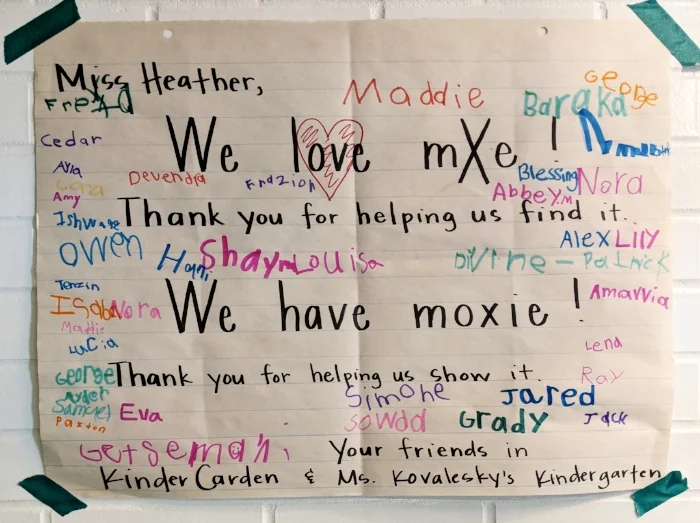 Miss Heather,
George
Maddie
Baraka
Freya
We love mXe !
Cedar
Ayla
Devendra
Blessing
Nora
Amy
Abbey.M
Ishwar
Thank you for helping us find it.
Owen
Hani
Shaym
Louisa
Alex
Lily
Divine - Patrick
Tenzin
Isaba
Nora
We have moxie !
Amavvia
Maddie
Lucia
Lena
George
Thank you for helping us show it.
Ray
Ayder
Simone
Jared
Samuel
Eva
Sowda
Grady
Jack
Paxton
Getsemahi
Your friends in
KinderCarden & Ms. Kovalesky's Kindergarten